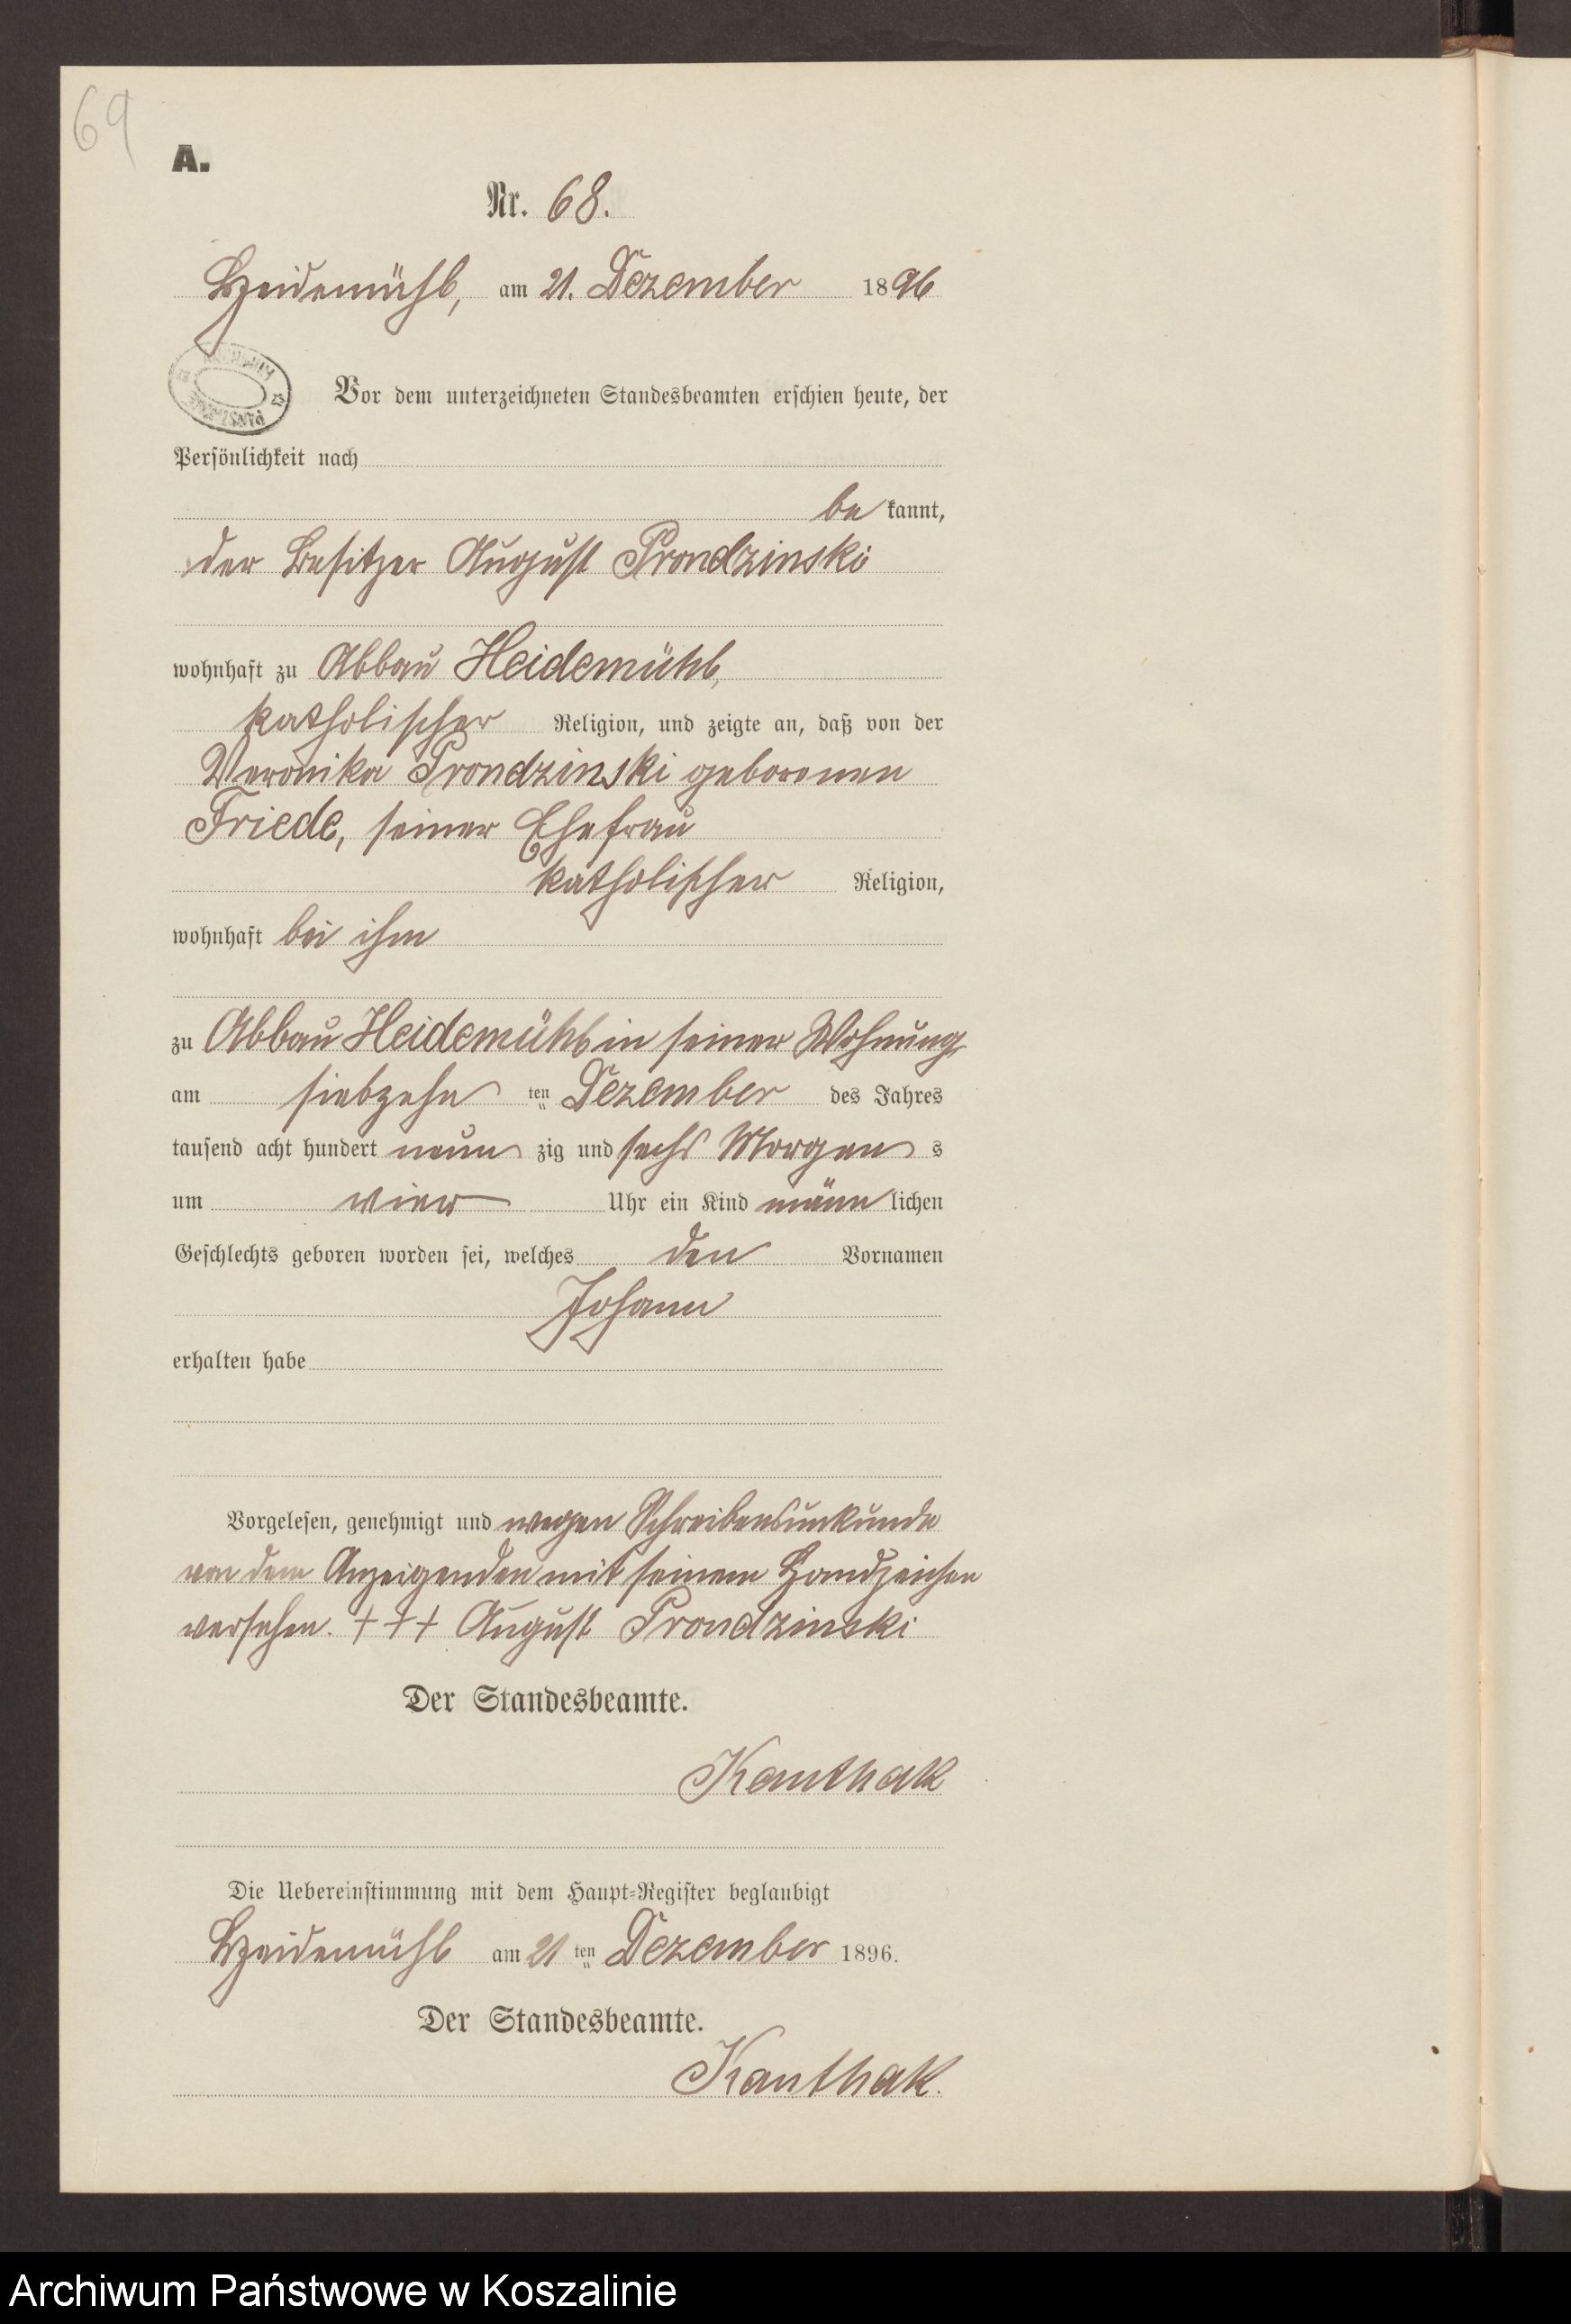 69
A.
Nr. 68.
Heidemühl, am 21. Dezember 1896
ARCHIWUM
PAŃSTWOWE
Vor dem unterzeichneten Standesbeamten erschien heute, der
Persönlichkeit nach
be kannt,
der Besitzer August Prondzinski
wohnhaft zu Abbau Heidemühl,
katholischer Religion, und zeigte an, daß von der
Veronika Prondzinski geborenen
Friede, seiner Ehefrau
katholischer Religion,
wohnhaft bei ihm
zu Abbau Heidemühl in seiner Wohnung
am siebzehn ten Dezember des Jahres
tausend acht hundert neun zig und sechs Morgen s
um vier Uhr ein Kind männ lichen
Geschlechts geboren worden sei, welches den Vornamen
Johann
erhalten habe
Vorgelesen, genehmigt und wegen Schreibensunkunde
von dem Anzeigenden mit seinem Handzeichen
versehen. + + + August Prondzinski
Der Standesbeamte.
Kanthak
Die Uebereinstimmung mit dem Haupt-Register beglaubigt
Heidemühl am 21 ten Dezember 1896.
Der Standesbeamte.
Kanthak.
Archiwum Państwowe w Koszalinie